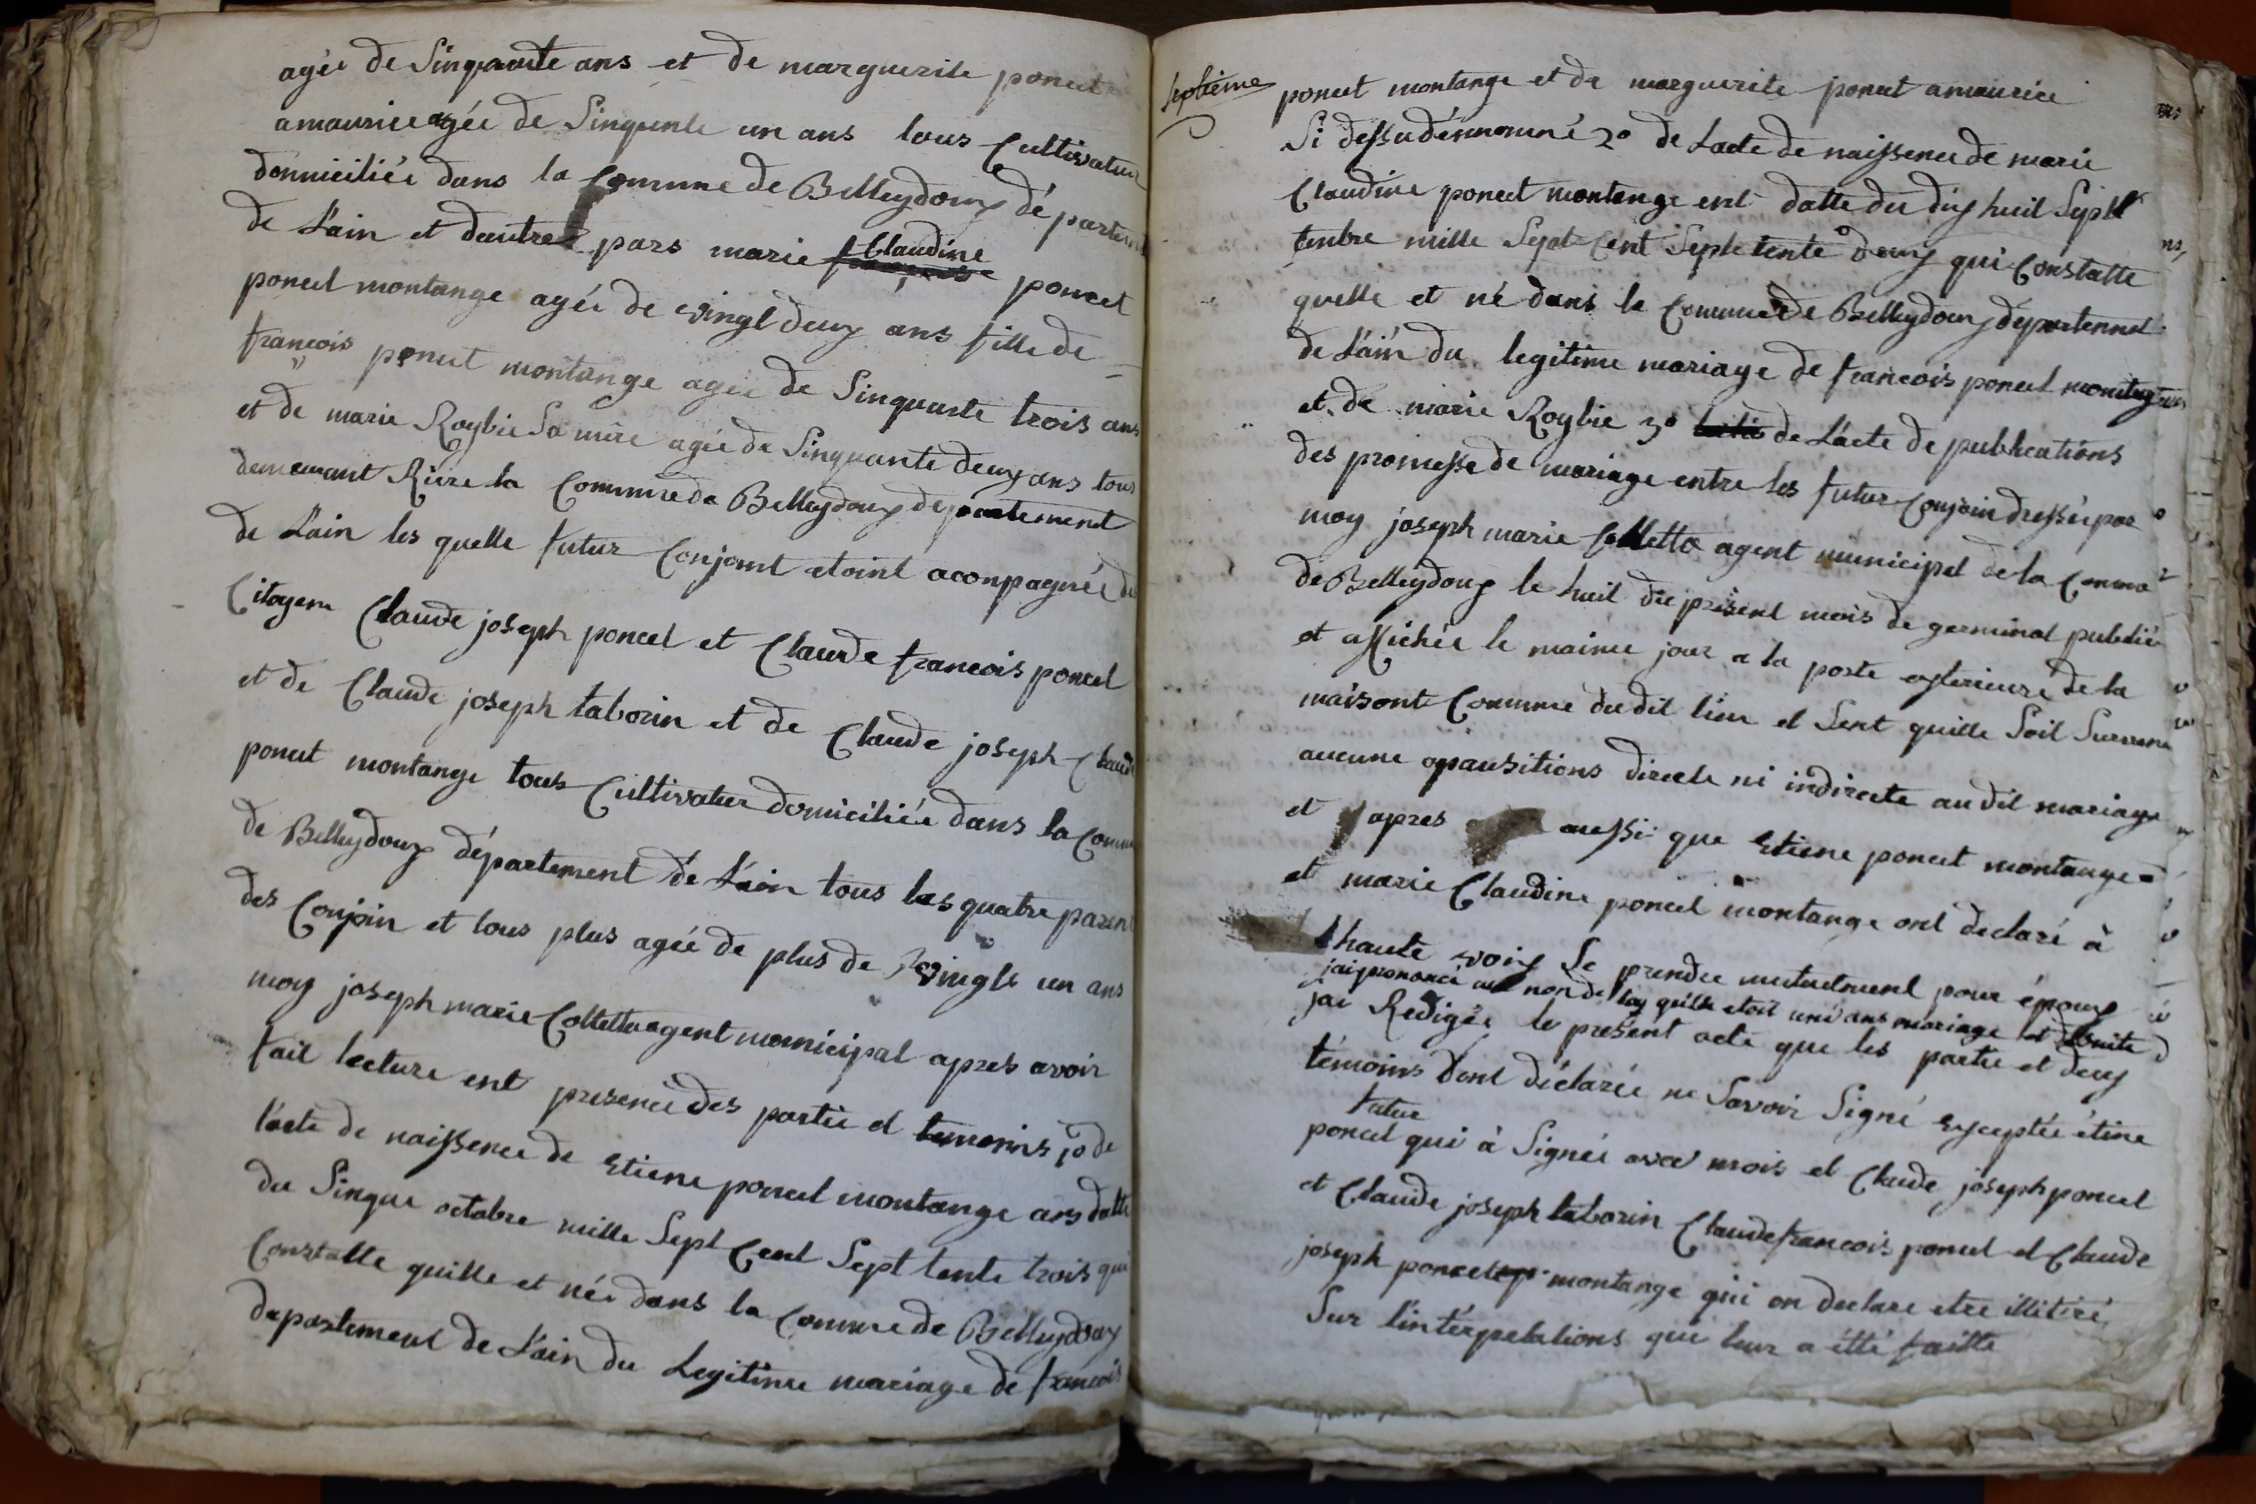 agée de Singuante ans et de marguerite poncet
amaurice agée de Singuente un ans tous Cultivateur
domiciliée dans la Comune de Belleydoux départem
de L'ain et dautre pars marie Claudine poncet
poncet montange agée de vingt deux ans fille de
francois poncet montange agée de Singuante trois ans
et de marie Roybie Sa mère agée de Singuante deux ans tous
demeurant Riere la Commune de Belleydoux departement
de L'ain les quelle futur Conjoint etoint aconpagnée de
Citoyens Claude joseph poncet et Claude francois poncet
et de Claude joseph taborin et de Claude joseph Claude
poncet montange tous Cultivateur domiciliée dans la Comm
de Belleydoux département de L'ain tous les quatre parent
des Conjoin et tous plus agée de plus de vingts un ans
moy joseph marie Collettaz agent municipal apres avoir
fait lecture ent presence des partie et temoins 1o de
l'acte de naissence de Etiene poncet montange ans datte
du Singue octobre mille Sept Cent Sept tente trois qui
Constatte quille et née dans la Comune de Belleydoux
departement de L'ain du Legitime mariage de francois
Septieme
poncet montange et de marguerite poncet amaurice
Si dessu dénnommé 2o de Lacte de naissence de marie
Claudine poncet montange ent datte du dix huit Sept
tenbre mille Sept Cent Septetente deux qui Constatte
quelle et né dans la Comune de Belleydoux département
de L'ain du legitime mariage de francois poncet montange
et de marie Roybie 3o de L'acte de publications
des promesse de mariage entre les futur Conjoin dressée par
moy joseph marie Collettaz agent municipal de la Comune
de Belleydoux le huit du présent mois de germinal publiée
et affichée le maime jour a la porte exterieure de la
maisont Commune du dit lieu et Sent quille Soit Survenu
aucune opausitions directe ni indirecte au dit mariage
et apres aussi que Etiene poncet montange
et marie Claudine poncet montange ont declaré à
haute voix Se prendre mutuelment pour époux
jai prononcé au non de la loy quille etoit uni ans mariage et desuite
jai Redigée le present acte que les partie et deux
témoins dont déclarée ne Savoir Signé exceptée étine
futur
poncet qui à Signée avec mois et Claude joseph poncet
et Claude joseph taborin Claude francois poncet et Claude
joseph poncet montange qui on declare etre illitéré
Sur l'intérpelations qui leur a étté faitte